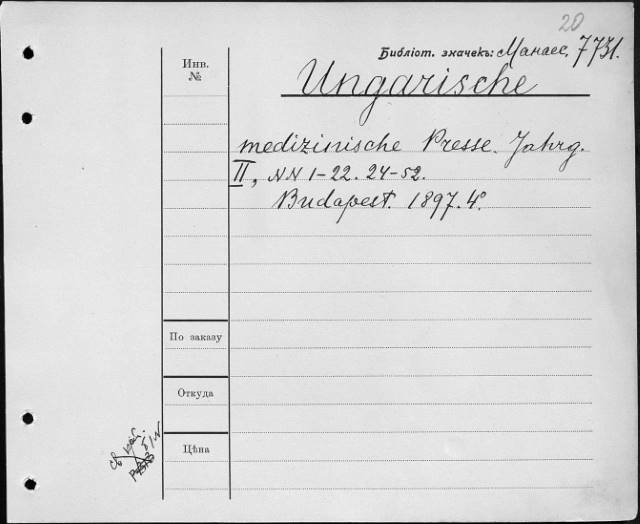 20
Библіот. значекъ: Манасс. 7731.
Инв.
№
Ungarische
medizinische Presse. Jahrg.
II, NN 1-22. 24-52.
Budapest. 1897. 4°.
По заказу
Откуда
Цѣна